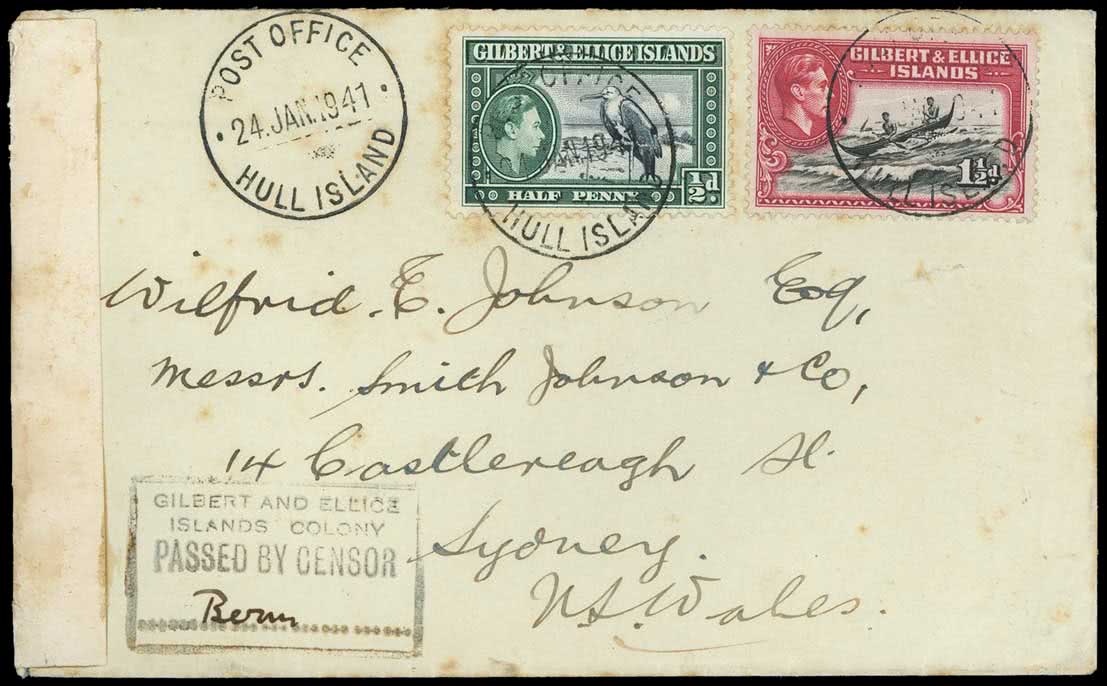 POST OFFICE
24.JAN.1941
HULL ISLAND
GILBERT & ELLICE ISLANDS
HALF PENNY
½d.
HULL ISLAND
GILBERT & ELLICE
ISLANDS
1½d
HULL ISLAND
Wilfrid. E. Johnson Esq,
Messrs. Smith Johnson & Co,
14 Castlereagh St.
Sydney.
N.S. Wales.
GILBERT AND ELLICE
ISLANDS COLONY
PASSED BY CENSOR